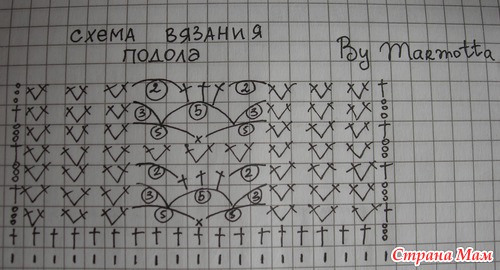 схема вязания
подола
By Marmotta
2 2
3 5 3
5 5
2 2
3 5 3
5 5
Страна Мам